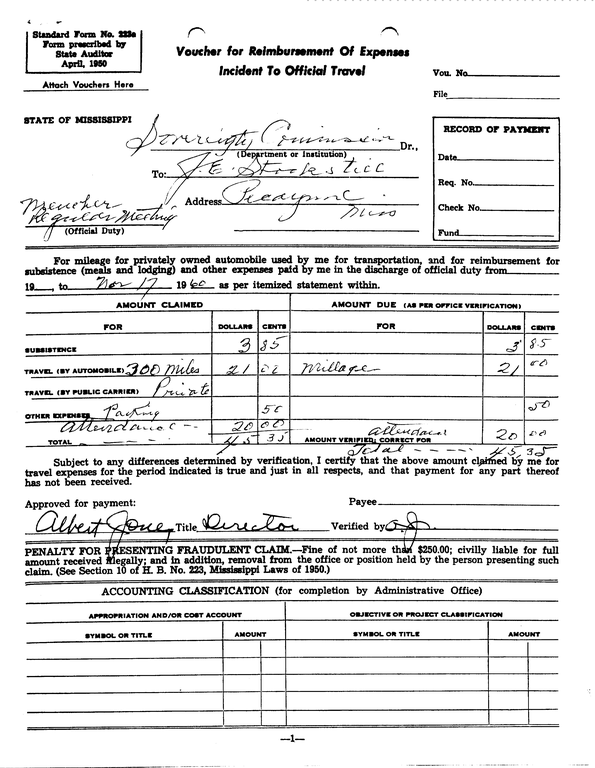 Standard Form No. 223a
Form prescribed by
State Auditor
April, 1950
Attach Vouchers Here
Voucher for Reimbursement Of Expenses
Incident To Official Travel
Vou. No.
File
STATE OF MISSISSIPPI
Sovereignty Commission Dr.,
(Department or Institution)
To: J.E. Stockstill
Address Picayune
Miss
Regular Meeting
(Official Duty)
RECORD OF PAYMENT
Date
Req. No.
Check No.
Fund
For mileage for privately owned automobile used by me for transportation, and for reimbursement for
subsistence (meals and lodging) and other expenses paid by me in the discharge of official duty from
19 , to Nov 17 1960 as per itemized statement within.
AMOUNT CLAIMED AMOUNT DUE (AS PER OFFICE VERIFICATION)
FOR DOLLARS CENTS FOR DOLLARS CENTS
SUBSISTENCE 3 85 3 85
TRAVEL (BY AUTOMOBILE) 300 Miles 21 00 Millage 21 00
TRAVEL (BY PUBLIC CARRIER) Private
OTHER EXPENSES Parking 50 50
Attendance 20 00 Attendance 20 00
TOTAL 45 35 AMOUNT VERIFIED; CORRECT FOR
Total 45,35
Subject to any differences determined by verification, I certify that the above amount claimed by me for
travel expenses for the period indicated is true and just in all respects, and that payment for any part thereof
has not been received.
Approved for payment: Payee
Albert Jones Title Director Verified by
PENALTY FOR PRESENTING FRAUDULENT CLAIM.—Fine of not more than $250.00; civilly liable for full
amount received illegally; and in addition, removal from the office or position held by the person presenting such
claim. (See Section 10 of H. B. No. 223, Mississippi Laws of 1950.)
ACCOUNTING CLASSIFICATION (for completion by Administrative Office)
APPROPRIATION AND/OR COST ACCOUNT OBJECTIVE OR PROJECT CLASSIFICATION
SYMBOL OR TITLE AMOUNT SYMBOL OR TITLE AMOUNT
—1—